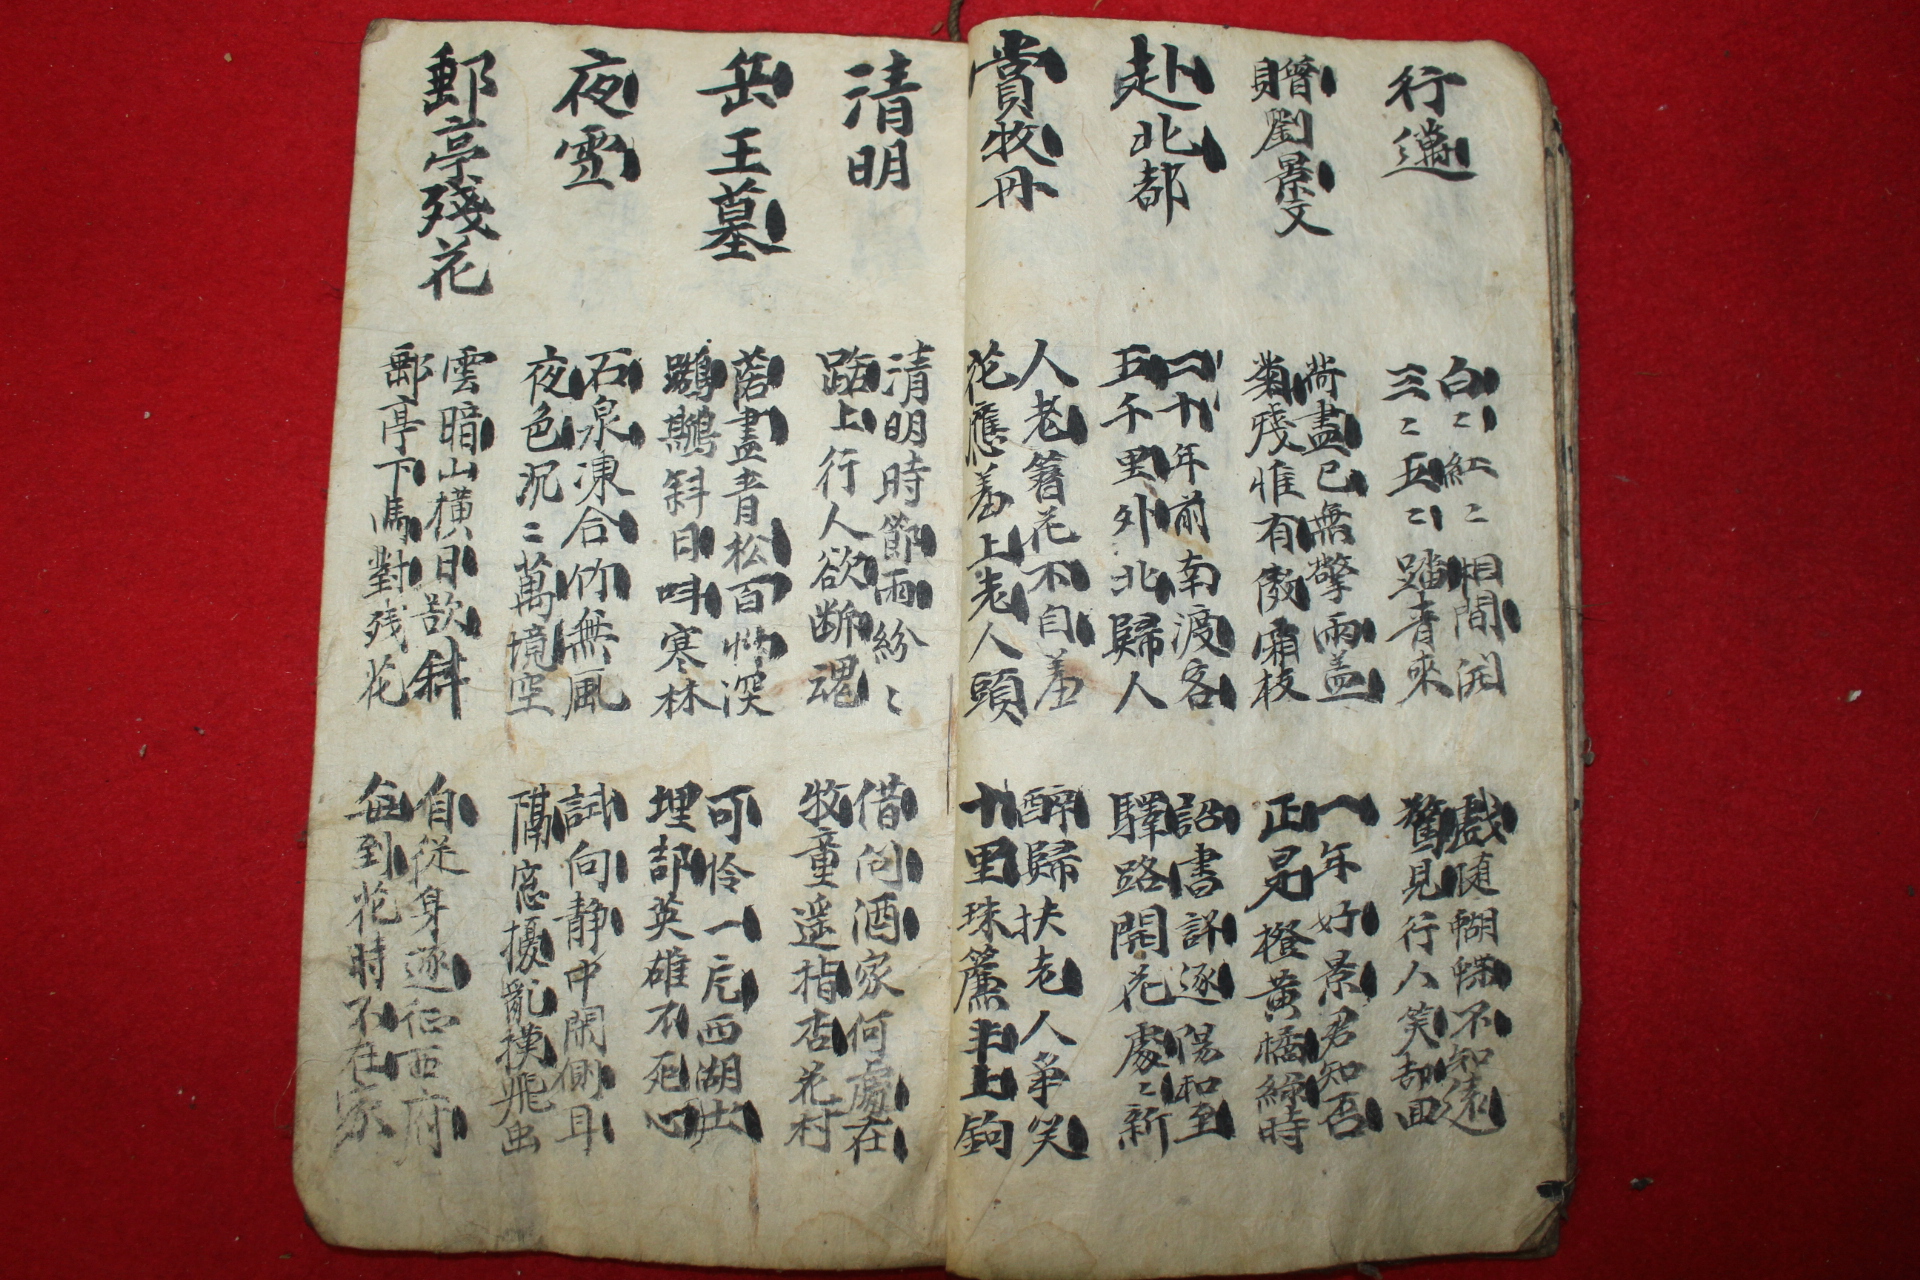 行
白〻紅〻相間開
三〻五〻踏青來
戲随蝴蝶不知遠
驚見行人笑却回
贈劉景文
荷盡已無擎雨盖
菊殘惟有傲霜枝
一年好景君知否
正是橙黃橘綠時
赴北都
二十年前南渡客
五千里外北歸人
詔書詳逐陽和至
驛路開花處〻新
賞牧丹
人老簪花不自羞
花應羞上老人頭
醉歸扶老人爭笑
十里珠簾半上鉤
清明
清明時節雨紛〻
路上行人欲断魂
借问酒家何處在
牧童遥指杏花村
岳王墓
落盡青松百恨深
鷓鴣斜日叫寒林
可怜一片西湖土
埋却英雄不死心
夜雪
石泉凍合竹無風
夜色沉〻萬境空
試向静中閑側耳
隔窓擾亂撲飛虫
郵亭殘花
雲暗山橫日欲斜
郵亭下馬對残花
自從身逐征西府
每到花時不在家